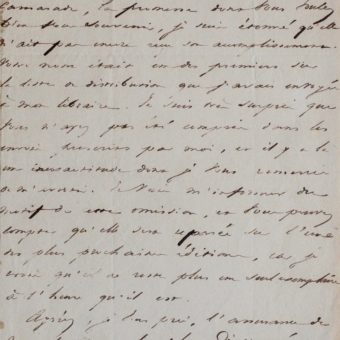 camarade, la promesse dont vous voulez
bien vous souvenir, je suis étonné qu'elle
n'ait pas encore reçu son accomplissement.
Votre nom était un des premiers sur
la liste de distribution que j'avais envoyée
à mon libraire. Je suis très surpris que
vous n'ayez pas été compris dans les
envois prescrits par moi, et il y a là
une inexactitude dont je vous remercie
de m'avertir. Je vais m'informer du
motif de cette omission, et vous pouvez
compter qu'elle sera réparée sur l'une
des plus prochaines éditions, car je
crois qu'il ne reste plus un seul exemplaire
à l'heure qu'il est
Agréez, je vous prie, l'assurance de